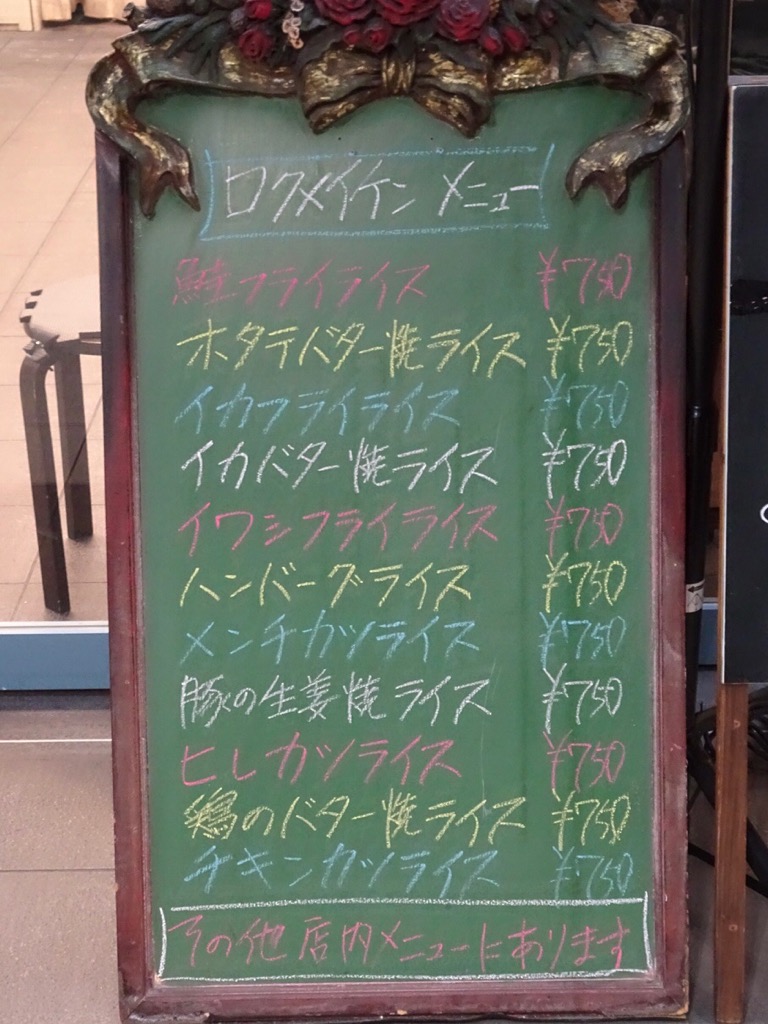 ロクメイケン メニュー
鮭フライライス ¥750
ホタテバター焼ライス ¥750
イカフライライス ¥750
イカバター焼ライス ¥750
イワシフライライス ¥750
ハンバーグライス ¥750
メンチカツライス ¥750
豚の生姜焼ライス ¥750
ヒレカツライス ¥750
鶏のバター焼ライス ¥750
チキンカツライス ¥750
その他店内メニューにあります